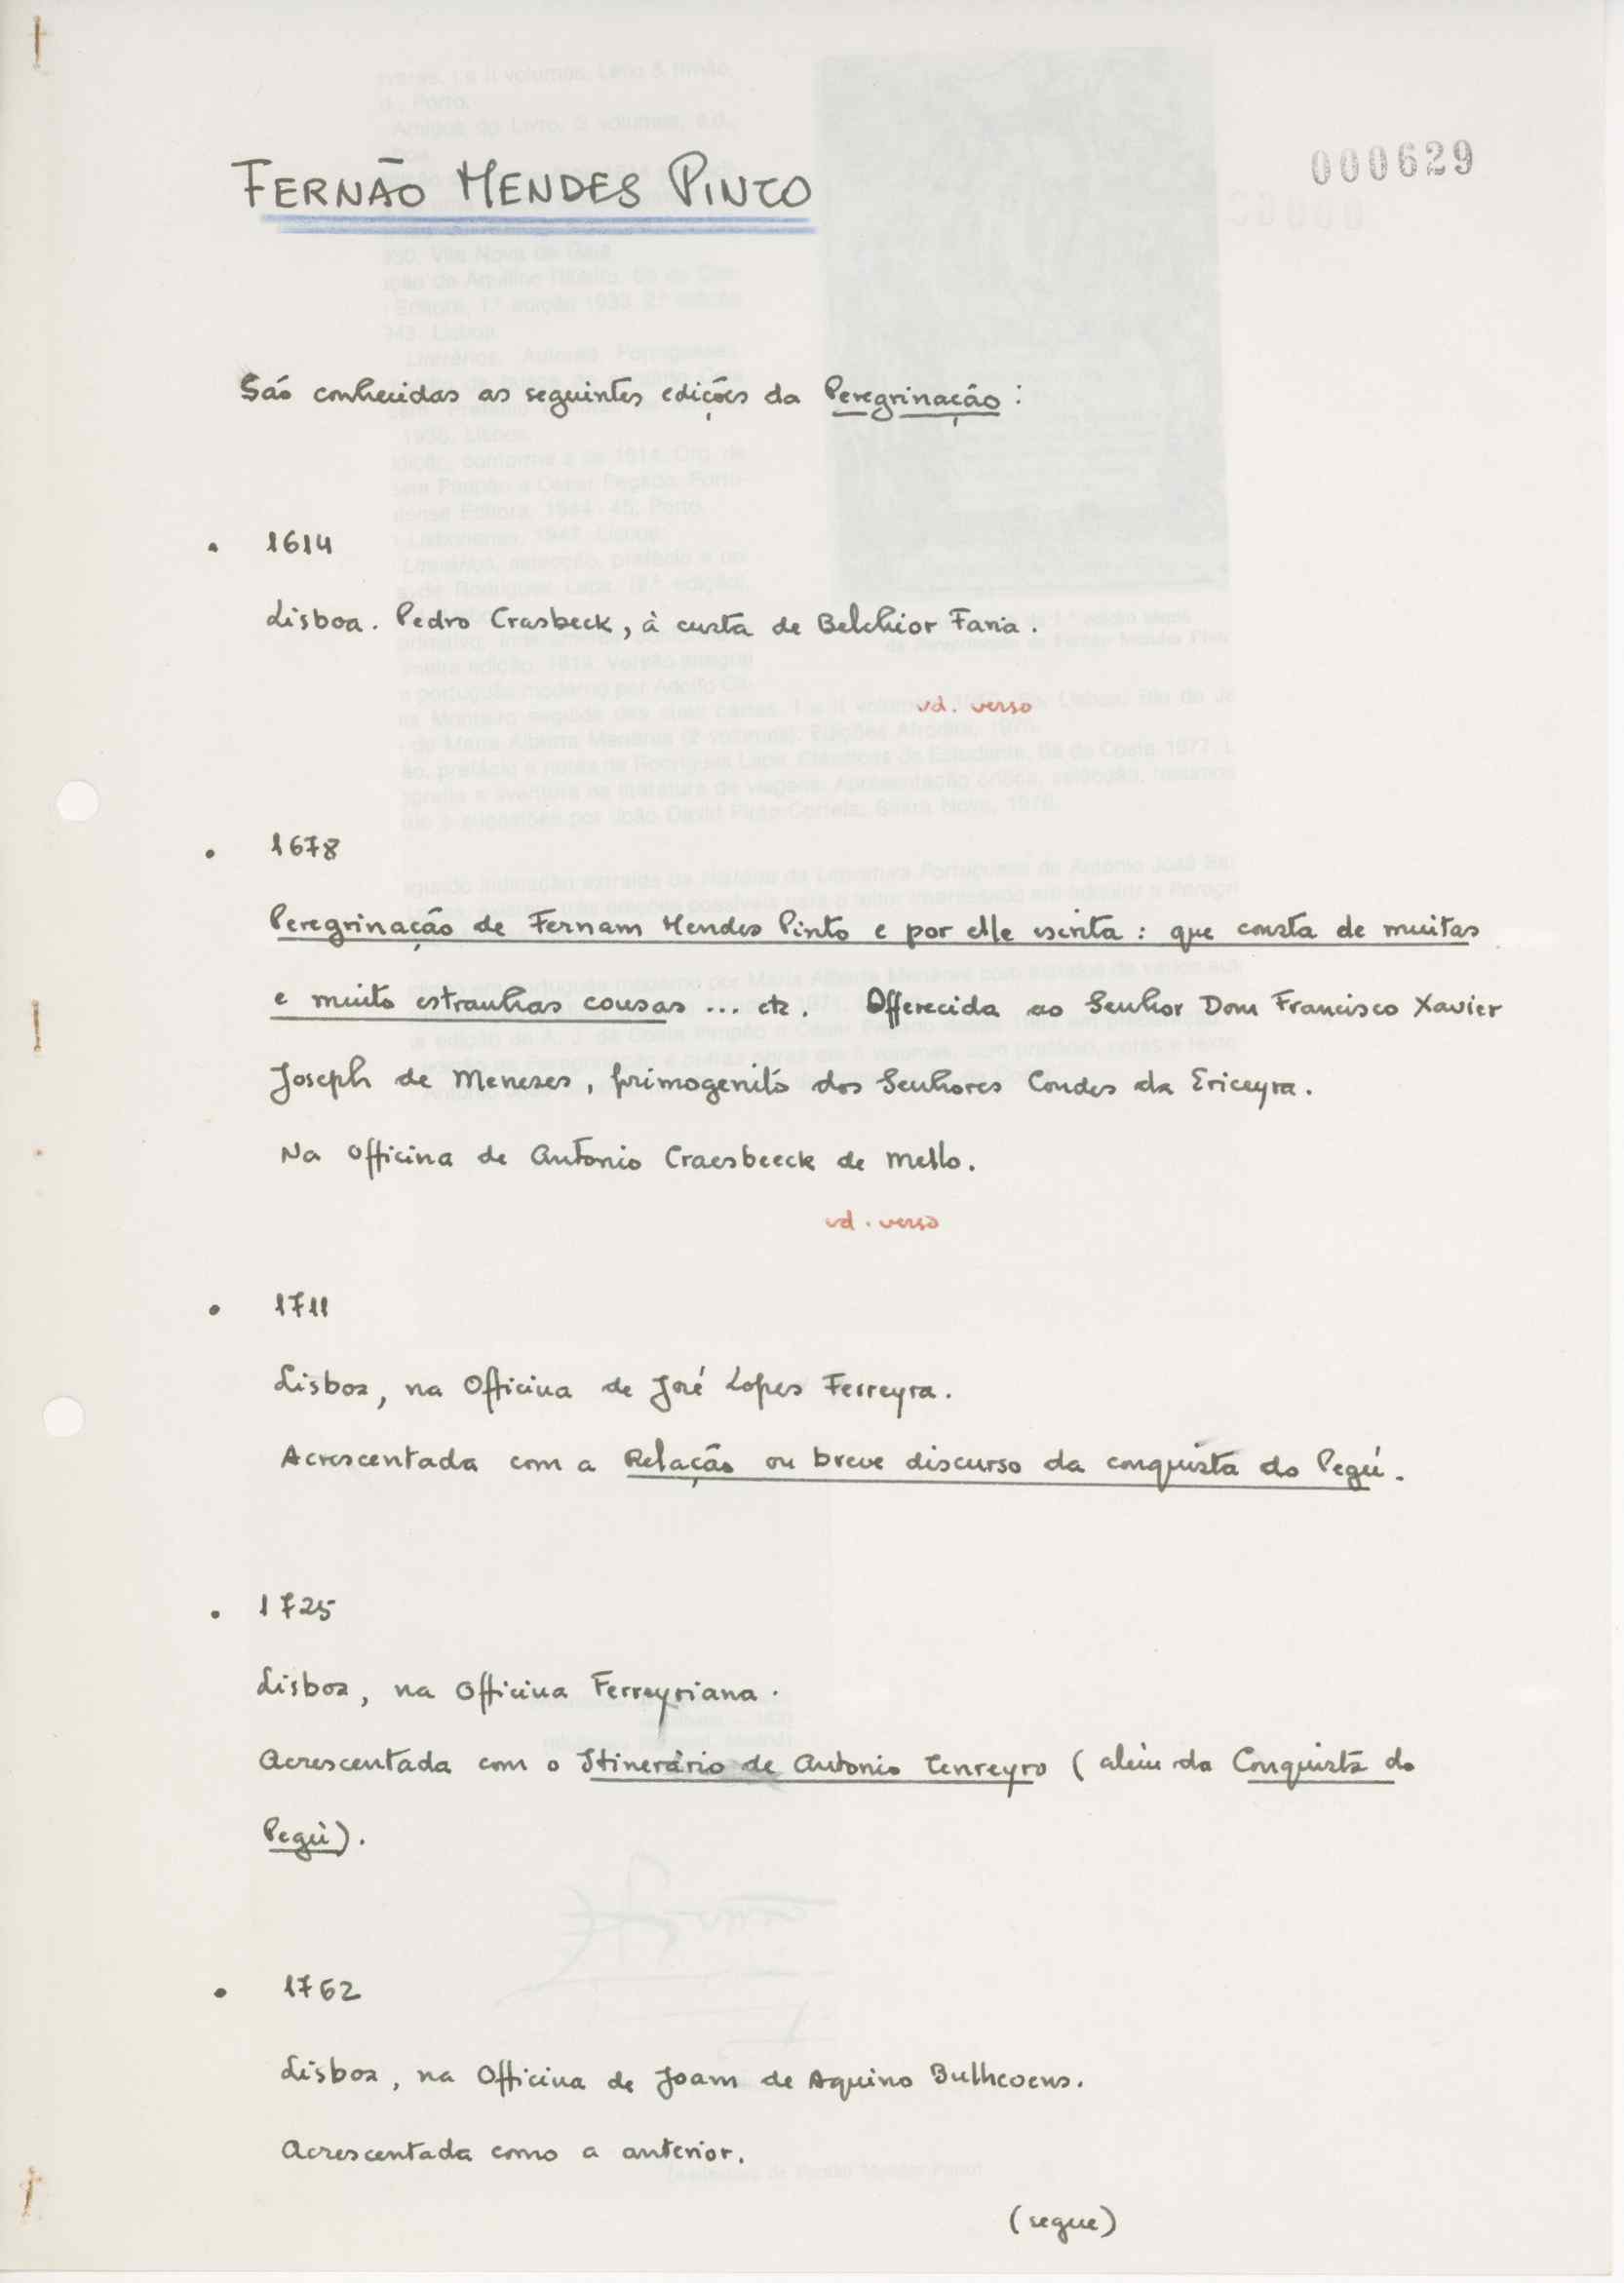 000629
FERNÃO MENDES PINTO
São conhecidas as seguintes edições da Peregrinação :
• 1614
Lisboa. Pedro Crasbeck, à custa de Belchior Faria.
vd. verso
• 1678
Peregrinação de Fernam Mendes Pinto e por elle escrita : que consta de muitas
e muito estranhas cousas ... etc. Offerecida ao Senhor Dom Francisco Xavier
Joseph de Meneses, primogenito dos Senhores Condes da Ericeyra.
Na Officina de Antonio Craesbeeck de Mello.
vd. verso
• 1711
Lisboa, na Officina de José Lopes Ferreyra.
Acrescentada com a Relação ou breve discurso da conquista do Pegú.
• 1725
Lisboa, na Officina Ferreyriana.
Acrescentada com o Itinerário de Antonio Tenreyro (além da Conquista do
Pegú).
• 1762
Lisboa, na Officina de Joam de Aquino Bulhcoens.
Acrescentada como a anterior.
(segue)